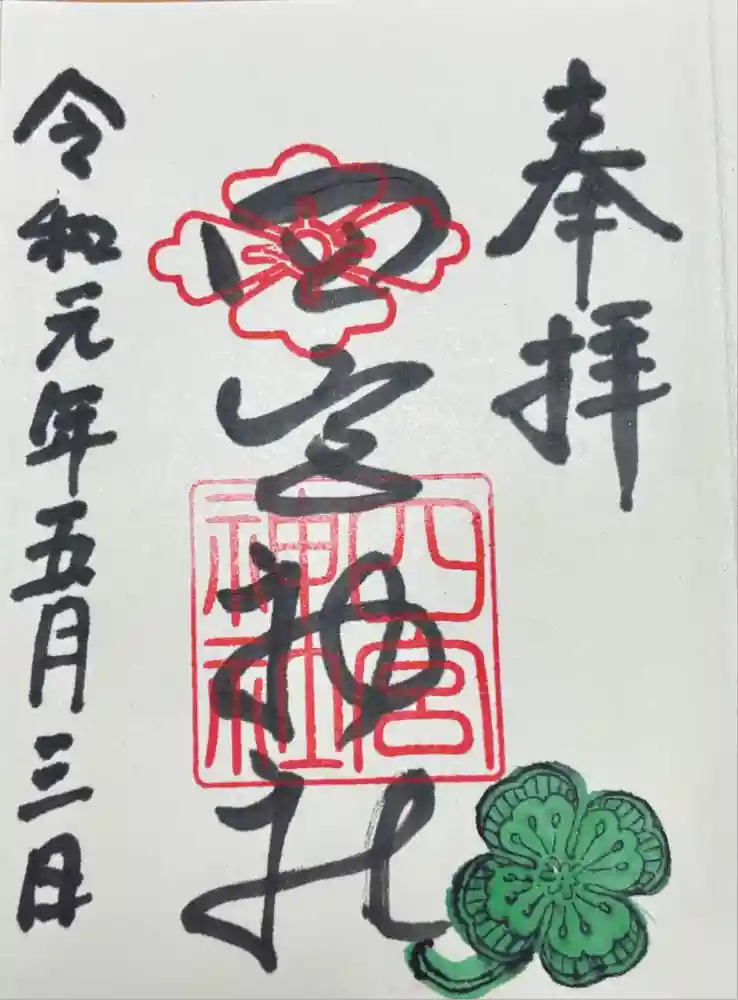 奉拝
四宮神社
四宮神社
令和元年五月三日